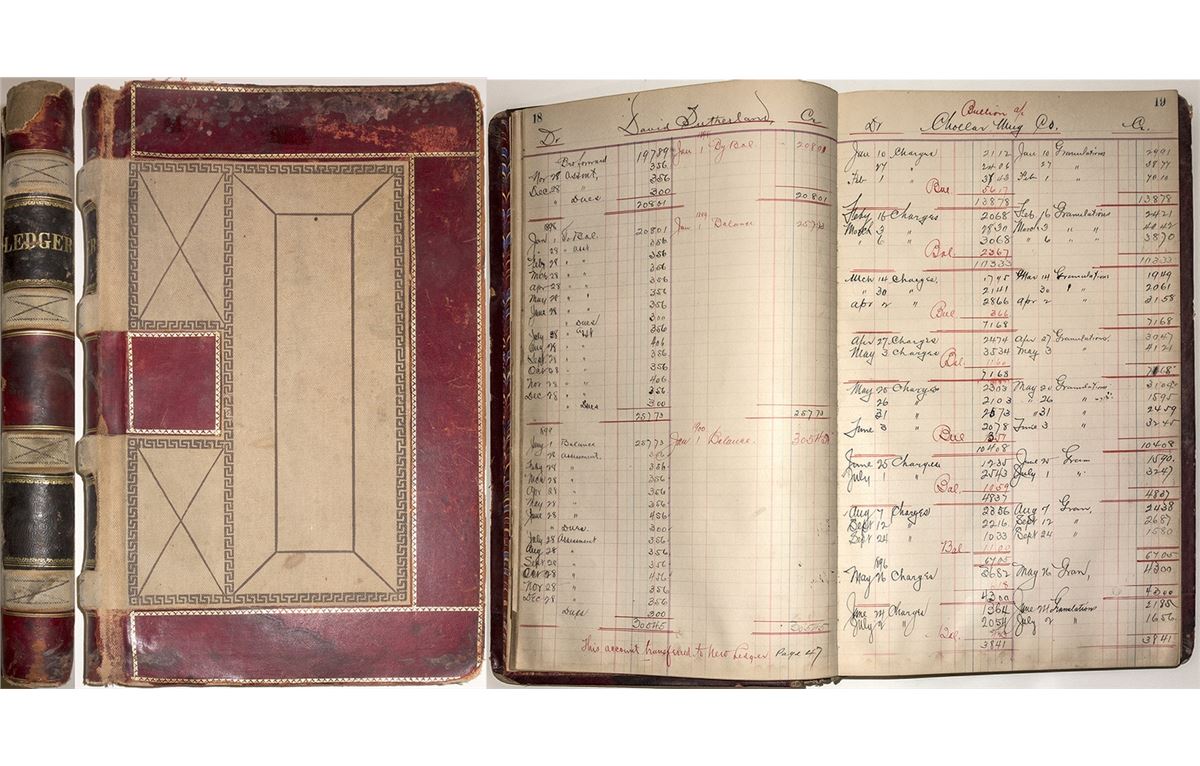 LEDGER
18
David Sutherland
Dr Cr
Bro forward 19789 Jan 1 By Bal. 20801
Nov 28 Assmt, 356
Dec 28 " 356
" Dues 300
20801 20801
1898 1899
Jan 1 To Bal. 20801 Jan 1 Balance 25773
" 28 " Asst 356
Feby 28 " " 356
Mar 28 " " 356
Apr 28 " " 356
May 28 " " 356
June 28 " " 356
" Dues 300
July 28 " 356
Aug 28 " " 406
Sept 28 " " 356
Oct 28 " " 356
Nov 28 " " 406
Dec 28 " " 356
" Dues 300
25773 25773
1899 1900
Jany 1 Balance 25773 Jan 1 Balance. 30545
" 28 Assessment.
Feby 28 " 356
Mar 28 " 356
Apr 28 " 356
May 28 " 356
June 28 " 456
" Dues. 300
July 28 Assessment 356
Aug 28 " 356
Sept 28 " 356
Oct 28 " 456
Nov 28 " 356
Dec 28 " 356
Dues 300
30545 30545
This account transferred to New Ledger Page 47
19
Bullion a/c
Dr Chollar Mng Co. Cr.
Jan 10 Charges 2112 Jan 10 Granulations
" 27 " " 27 " 3877
Feb 1 " Feb 1 " 7010
Bal 5617
13878 13878
Feby 16 Charges 2068 Feb 16 Granulations 2421
March 3 " 2830 March 3 " 4042
" 6 " 3068 " 6 " 3870
Bal. 2367
10333 10333
Mrch 14 Charges. 1795 Mar 14 Granulations 1949
" 30 " 2141 " 30 " 2061
Apr 2 " 2866 Apr 2 " 3158
Bal 366
7168 7168
Apr 27 Charges 2474 Apr 27 Granulations. 3047
May 3 Charges 3534 May 3 " 4121
Bal. 1160
7168 7168
May 20 Charges May 20 Granulations
26 2103 26 " 1595
31 2573 " 31 " 2459
June 3 " 2078 June 3 " 3245
Bal
10408 10408
June 25 Charges 1235 June 25 Gran 1590
July 1 " 2543 July 1 " 3247
Bal. 1059
4837 4837
Aug 7 Charges 2356 Aug 7 Gran, 2438
Sept 12 " 2216 Sept 12 " 2687
Sept 24 " 1033 Sept 24 " 1580
Bal 1100
6705 6705
1896
May 16 Charges 3682 May 16 Gran, 4300
4300 4300
June 24 Charges 1364 June 24 Granulation 2185
July 2 " 2054 July 2 " 1656
Bal.
3841 3841